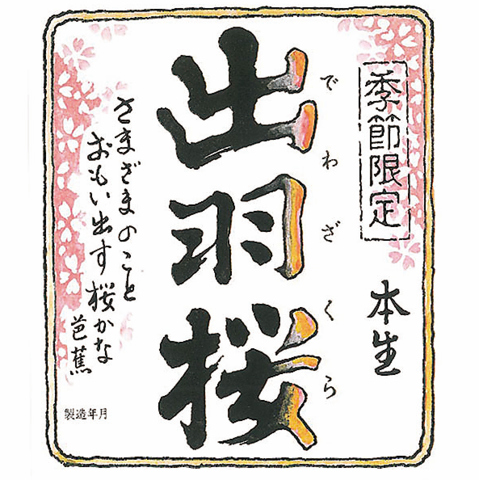 季節限定
本生
出羽桜
でわざくら
さまざまのこと
おもい出す桜かな
芭蕉
製造年月